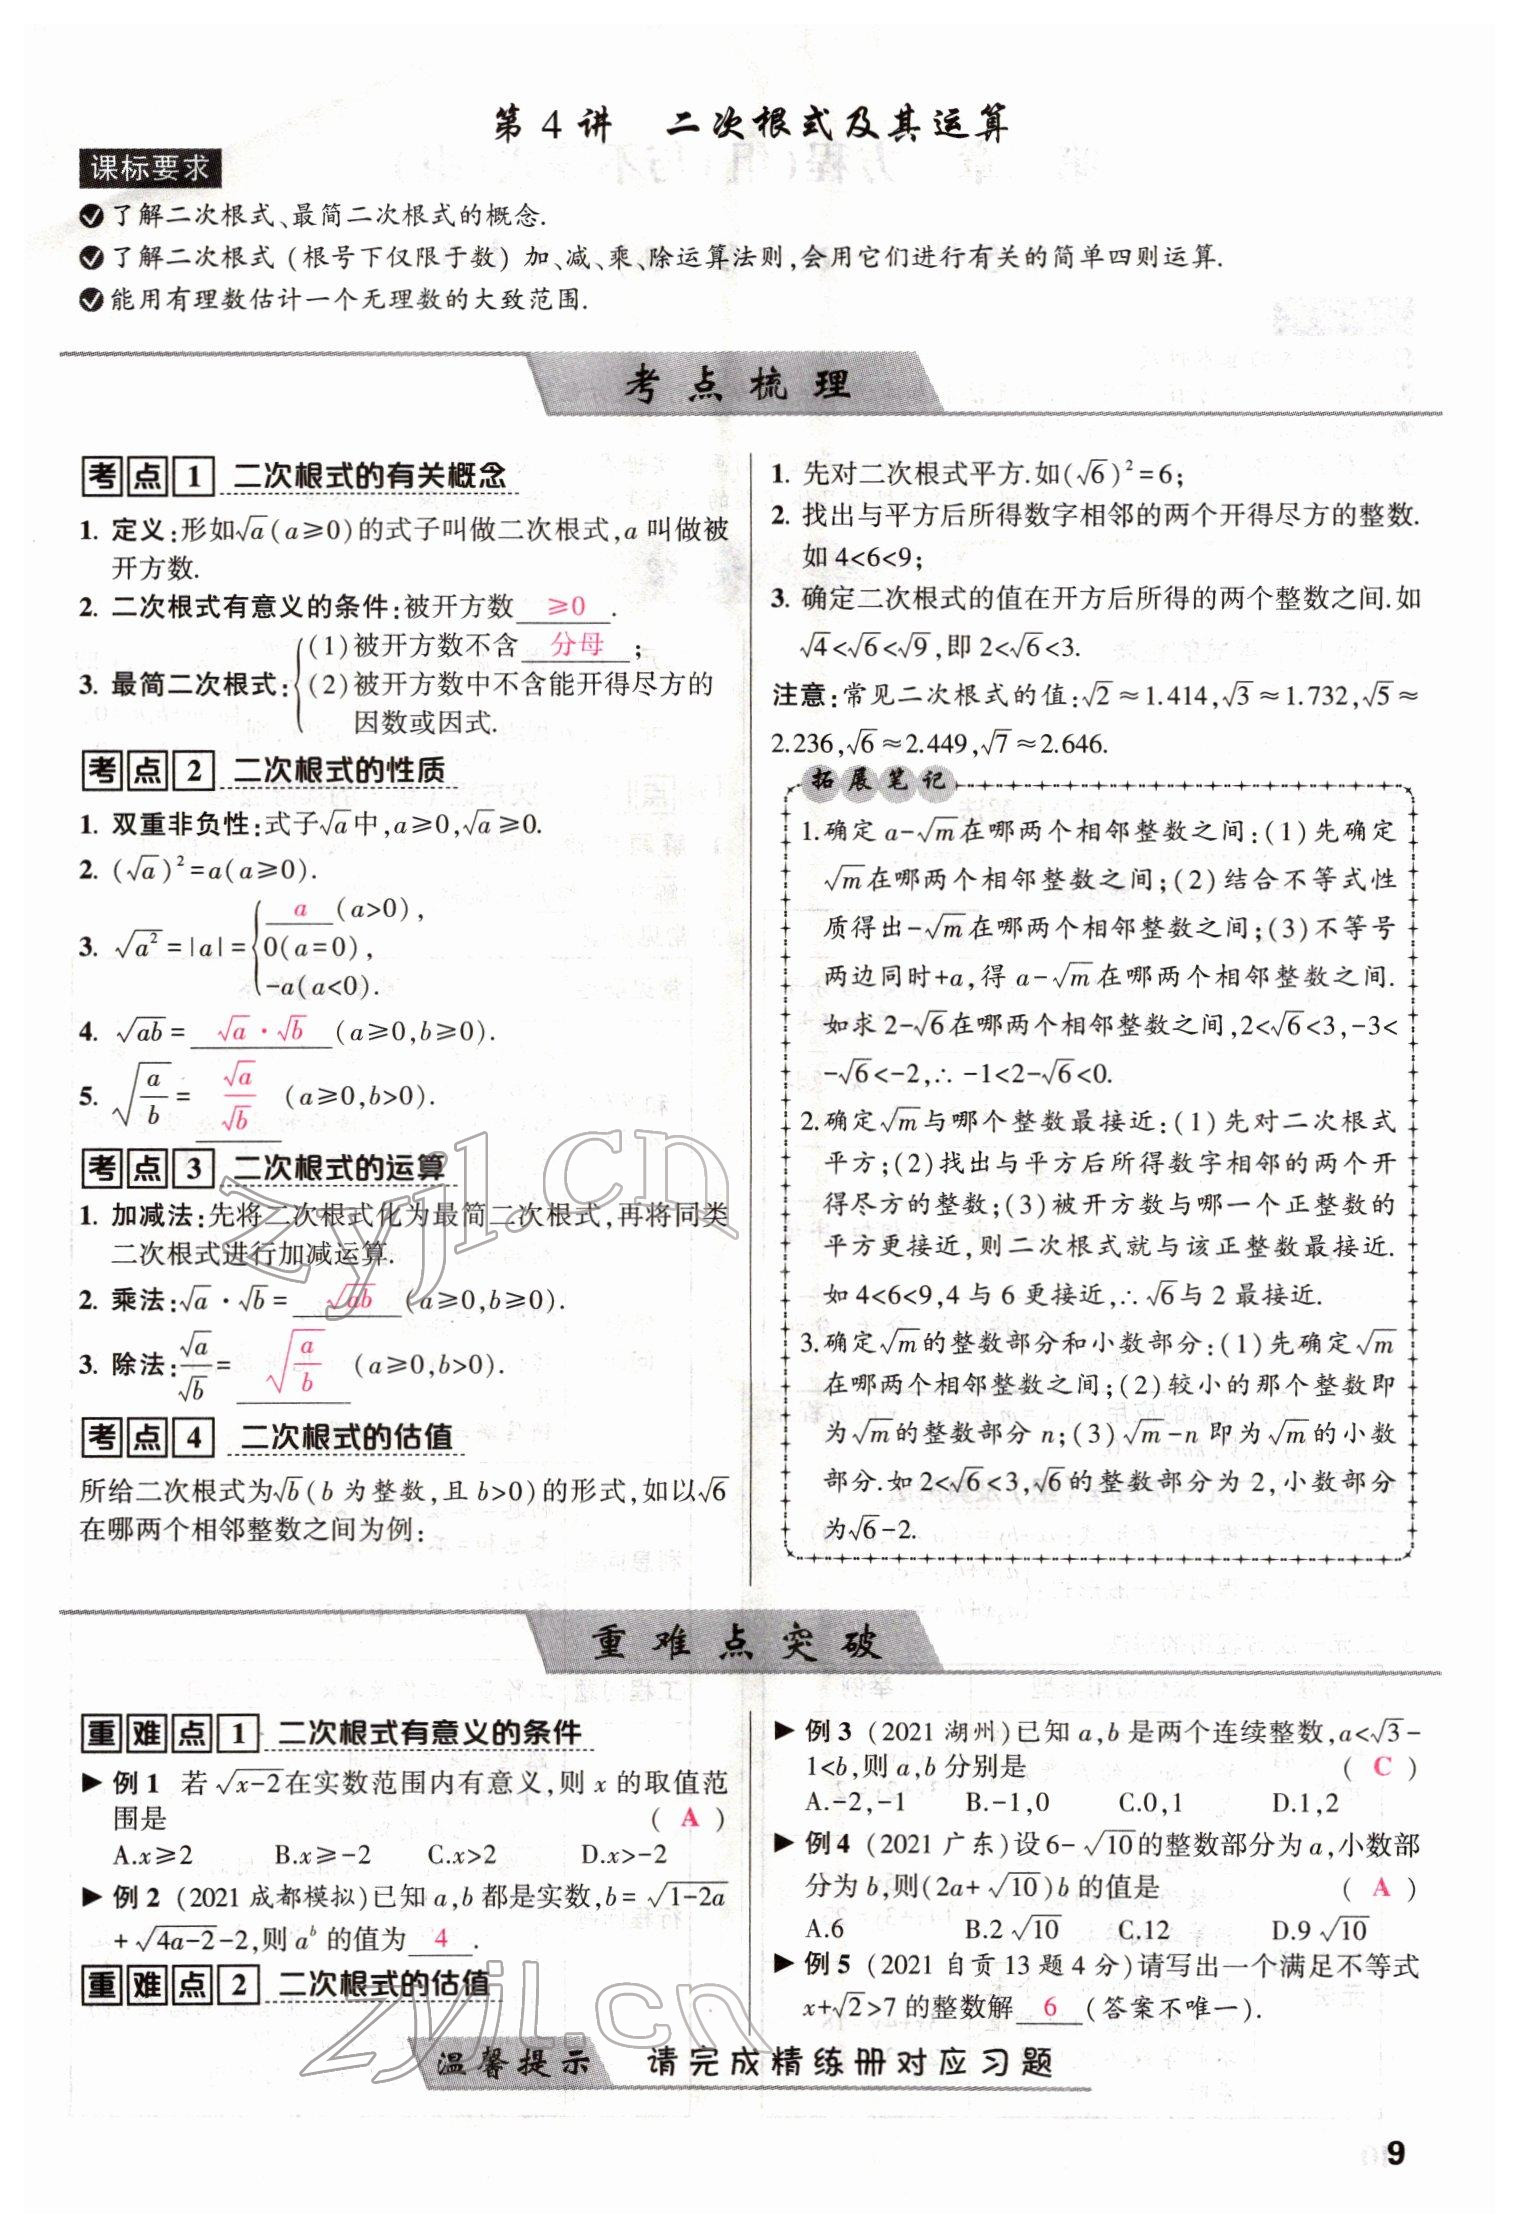 第4讲 二次根式及其运算
课标要求
了解二次根式、最简二次根式的概念.
了解二次根式(根号下仅限于数)加、减、乘、除运算法则,会用它们进行有关的简单四则运算.
能用有理数估计一个无理数的大致范围.
考点梳理
考点1 二次根式的有关概念
1. 定义:形如√a(a≥0)的式子叫做二次根式,a 叫做被
开方数.
2. 二次根式有意义的条件:被开方数 ≥0 .
3. 最简二次根式:
(1)被开方数不含 分母 ;
(2)被开方数中不含能开得尽方的
因数或因式.
考点2 二次根式的性质
1. 双重非负性:式子√a中,a≥0,√a≥0.
2. (√a)²=a(a≥0).
3. √a²=|a|=
a (a>0),
0(a=0),
-a(a<0).
4. √ab= √a·√b (a≥0,b≥0).
5. √(a/b)= √a/√b (a≥0,b>0).
考点3 二次根式的运算
1. 加减法:先将二次根式化为最简二次根式,再将同类
二次根式进行加减运算.
2. 乘法:√a·√b= √ab (a≥0,b≥0).
3. 除法:√a/√b= √(a/b) (a≥0,b>0).
考点4 二次根式的估值
所给二次根式为√b(b 为整数,且 b>0)的形式,如以√6
在哪两个相邻整数之间为例:
1. 先对二次根式平方.如(√6)²=6;
2. 找出与平方后所得数字相邻的两个开得尽方的整数.
如 4<6<9;
3. 确定二次根式的值在开方后所得的两个整数之间.如
√4<√6<√9,即 2<√6<3.
注意:常见二次根式的值:√2≈1.414,√3≈1.732,√5≈
2.236,√6≈2.449,√7≈2.646.
拓展笔记
1.确定 a-√m在哪两个相邻整数之间:(1)先确定
√m在哪两个相邻整数之间;(2)结合不等式性
质得出-√m在哪两个相邻整数之间;(3)不等号
两边同时+a,得 a-√m在哪两个相邻整数之间.
如求 2-√6在哪两个相邻整数之间,2<√6<3,-3<
-√6<-2,∴-1<2-√6<0.
2.确定√m与哪个整数最接近:(1)先对二次根式
平方;(2)找出与平方后所得数字相邻的两个开
得尽方的整数;(3)被开方数与哪一个正整数的
平方更接近,则二次根式就与该正整数最接近.
如 4<6<9,4 与 6 更接近,∴√6与 2 最接近.
3.确定√m的整数部分和小数部分:(1)先确定√m
在哪两个相邻整数之间;(2)较小的那个整数即
为√m的整数部分 n;(3)√m-n 即为√m的小数
部分.如 2<√6<3,√6的整数部分为 2,小数部分
为√6-2.
重难点突破
重难点1 二次根式有意义的条件
▶例1 若√(x-2)在实数范围内有意义,则 x 的取值范
围是 ( A )
A.x≥2 B.x≥-2 C.x>2 D.x>-2
▶例2 (2021 成都模拟)已知 a,b 都是实数,b=√(1-2a)
+√(4a-2)-2,则 aᵇ 的值为 4 .
重难点2 二次根式的估值
▶例3 (2021 湖州)已知 a,b 是两个连续整数,a<√3-
1<b,则 a,b 分别是 ( C )
A.-2,-1 B.-1,0 C.0,1 D.1,2
▶例4 (2021 广东)设 6-√10的整数部分为 a,小数部
分为 b,则(2a+√10)b 的值是 ( A )
A.6 B.2√10 C.12 D.9√10
▶例5 (2021 自贡 13 题 4 分)请写出一个满足不等式
x+√2>7 的整数解 6 (答案不唯一).
温馨提示 请完成精练册对应习题
9
zyjl.cn
zyjl.cn